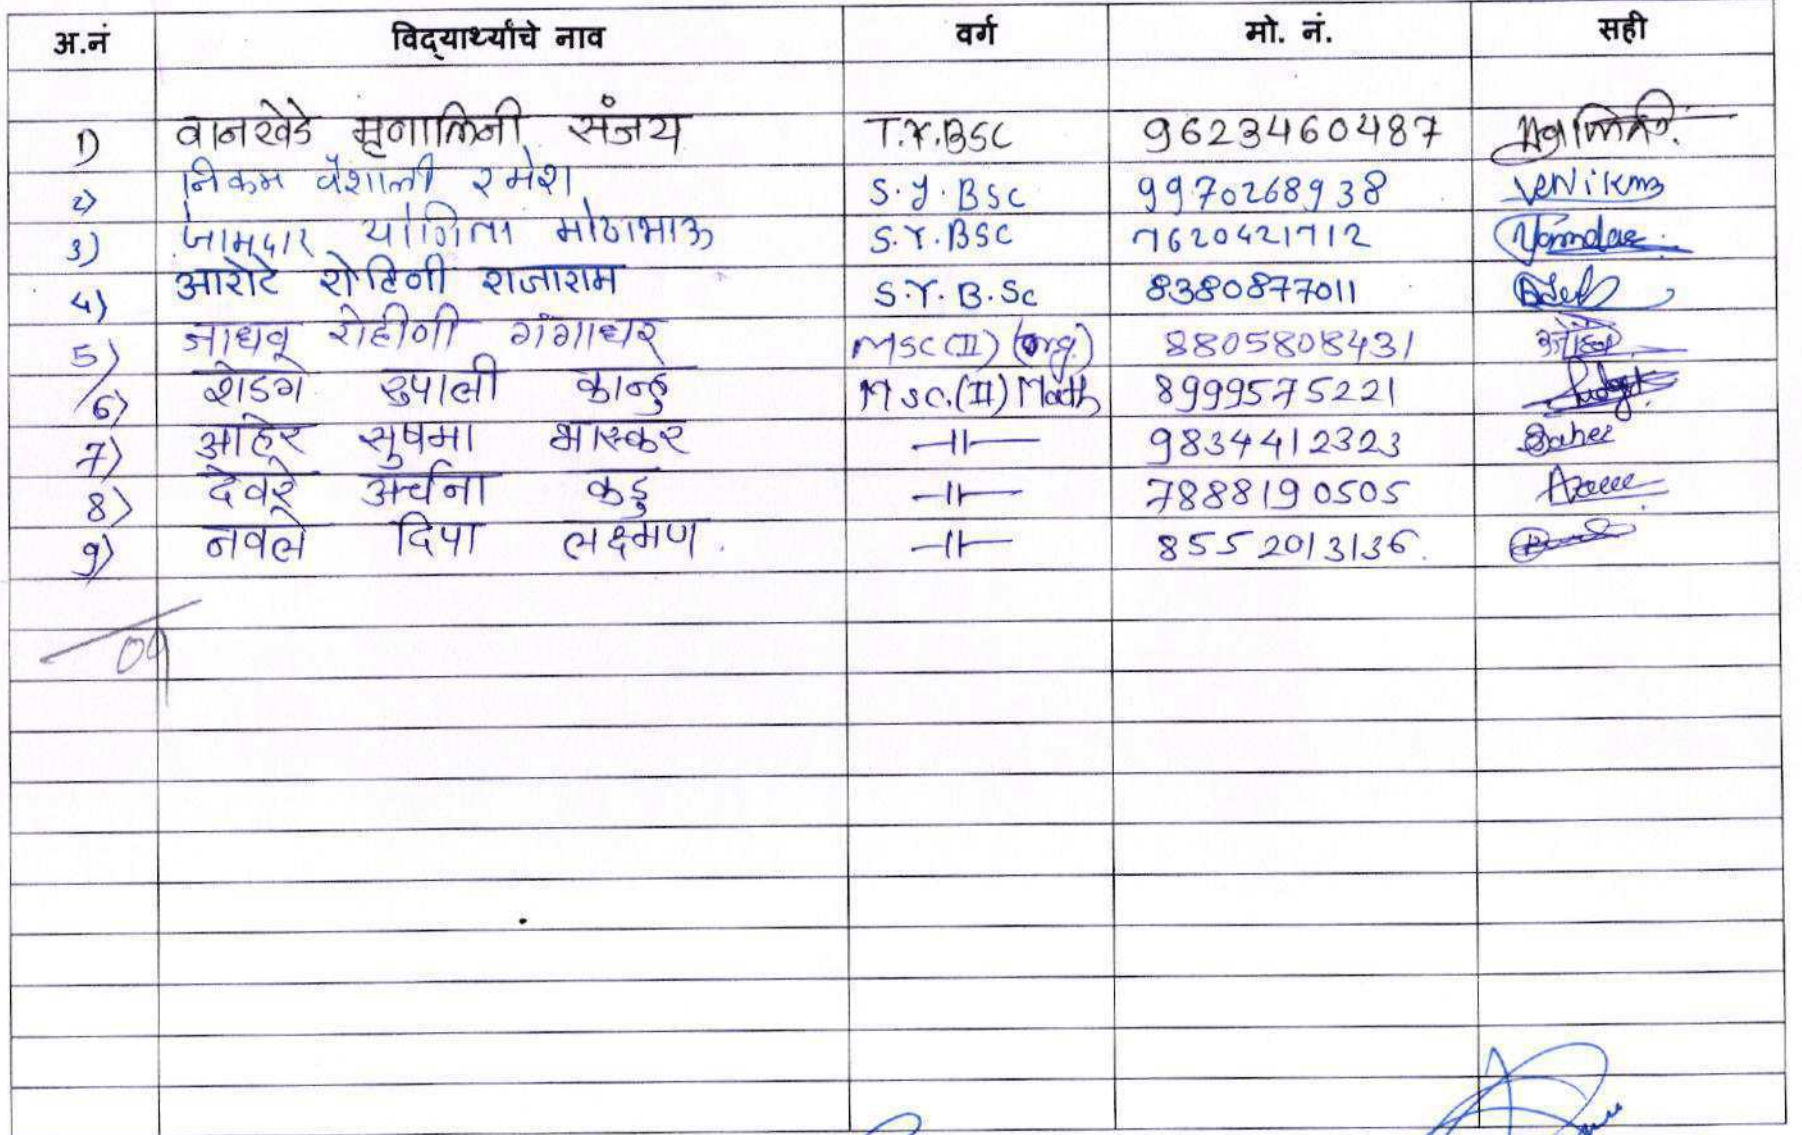 अ.नं विद्यार्थ्यांचे नाव वर्ग मो. नं. सही
1) वानखेडे मृणालिनी संजय T.Y.BSC 9623460487
2) निकम वैशाली रमेश S.Y.BSC 9970268938
3) जामदार योगिता मोठाभाऊ S.Y.BSC 7620421712
4) आरोटे रोहिणी राजाराम S.Y.B.Sc 8380877011
5) जाधव रोहीणी गंगाधर MSC(II) (org.) 8805808431
6) शेडगे रुपाली कान्हु M.sc.(II) Math 8999575221
7) आहेर सुषमा भास्कर -॥- 9834412323
8) देवरे अर्चना कडु -॥- 7888190505
9) नवले दिपा लक्ष्मण. -॥- 8552013136.
09